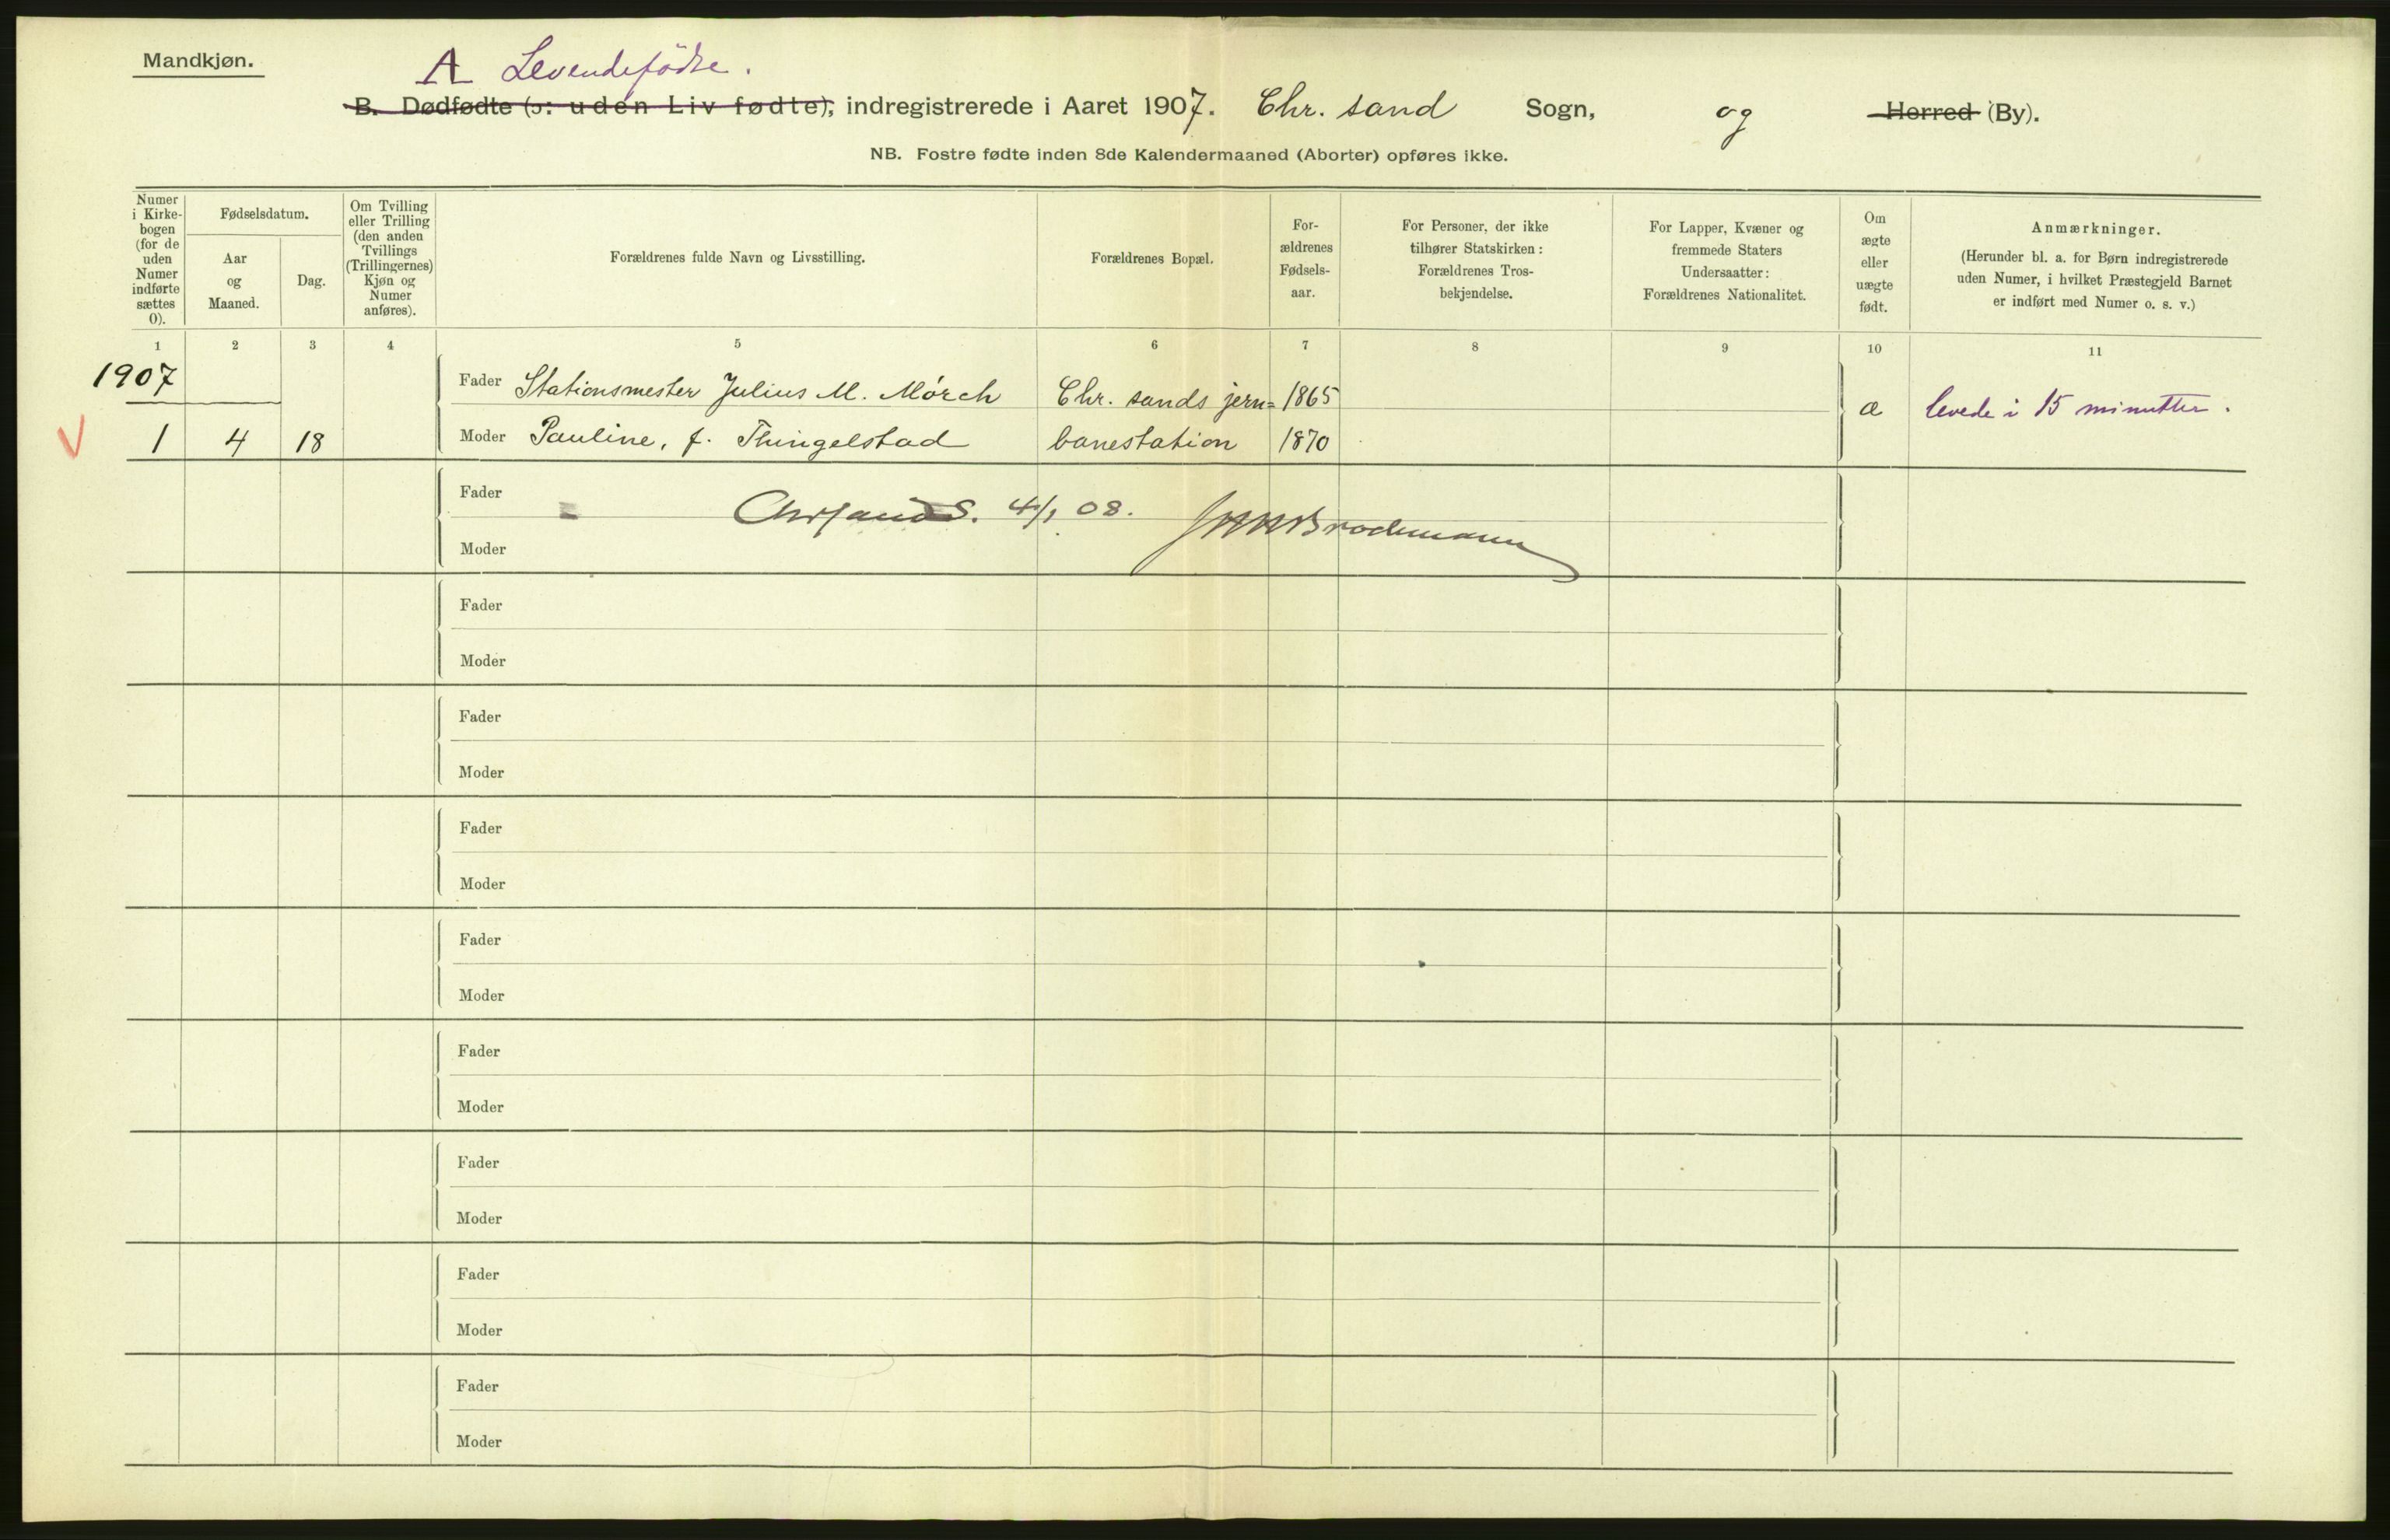 Mandkjøn.
A Levendefödte.
B. Dødfødte (ɔ: uden Liv fødte), indregistrerede i Aaret 1907. Chr. sand Sogn, og Herred (By).
NB. Fostre fødte inden 8de Kalendermaaned (Aborter) opføres ikke.
Numer
i Kirke-
bogen
(for de
uden
Numer
indførte
sættes
0).
Fødselsdatum.
Aar
og
Maaned.
Dag.
Om Tvilling
eller Trilling
(den anden
Tvillings
(Trillingernes)
Kjøn og
Numer
anføres).
Forældrenes fulde Navn og Livsstilling.
Forældrenes Bopæl.
For-
ældrenes
Fødsels-
aar.
For Personer, der ikke
tilhører Statskirken:
Forældrenes Tros-
bekjendelse.
For Lapper, Kvæner og
fremmede Staters
Undersaatter:
Forældrenes Nationalitet.
Om
ægte
eller
uægte
født.
Anmærkninger.
(Herunder bl. a. for Børn indregistrerede
uden Numer, i hvilket Præstegjeld Barnet
er indført med Numer o. s. v.)
1 2 3 4 5 6 7 8 9 10 11
1907
Fader Stationsmester Julius M. Mórch Chr. sands jern= 1865
æ levede i 15 minutter.
V 1 4 18 Moder Pauline, f. Thingelstad banestation 1870
Fader
Chrsand S. 4/1 08.
Moder
Fader
Moder
Fader
Moder
Fader
Moder
Fader
Moder
Fader
Moder
Fader
Moder
Fader
Moder
Fader
Moder